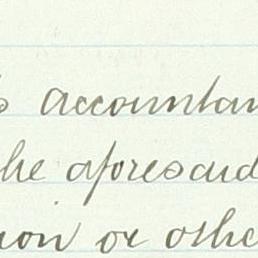 accountan
the aforesaid
or othe